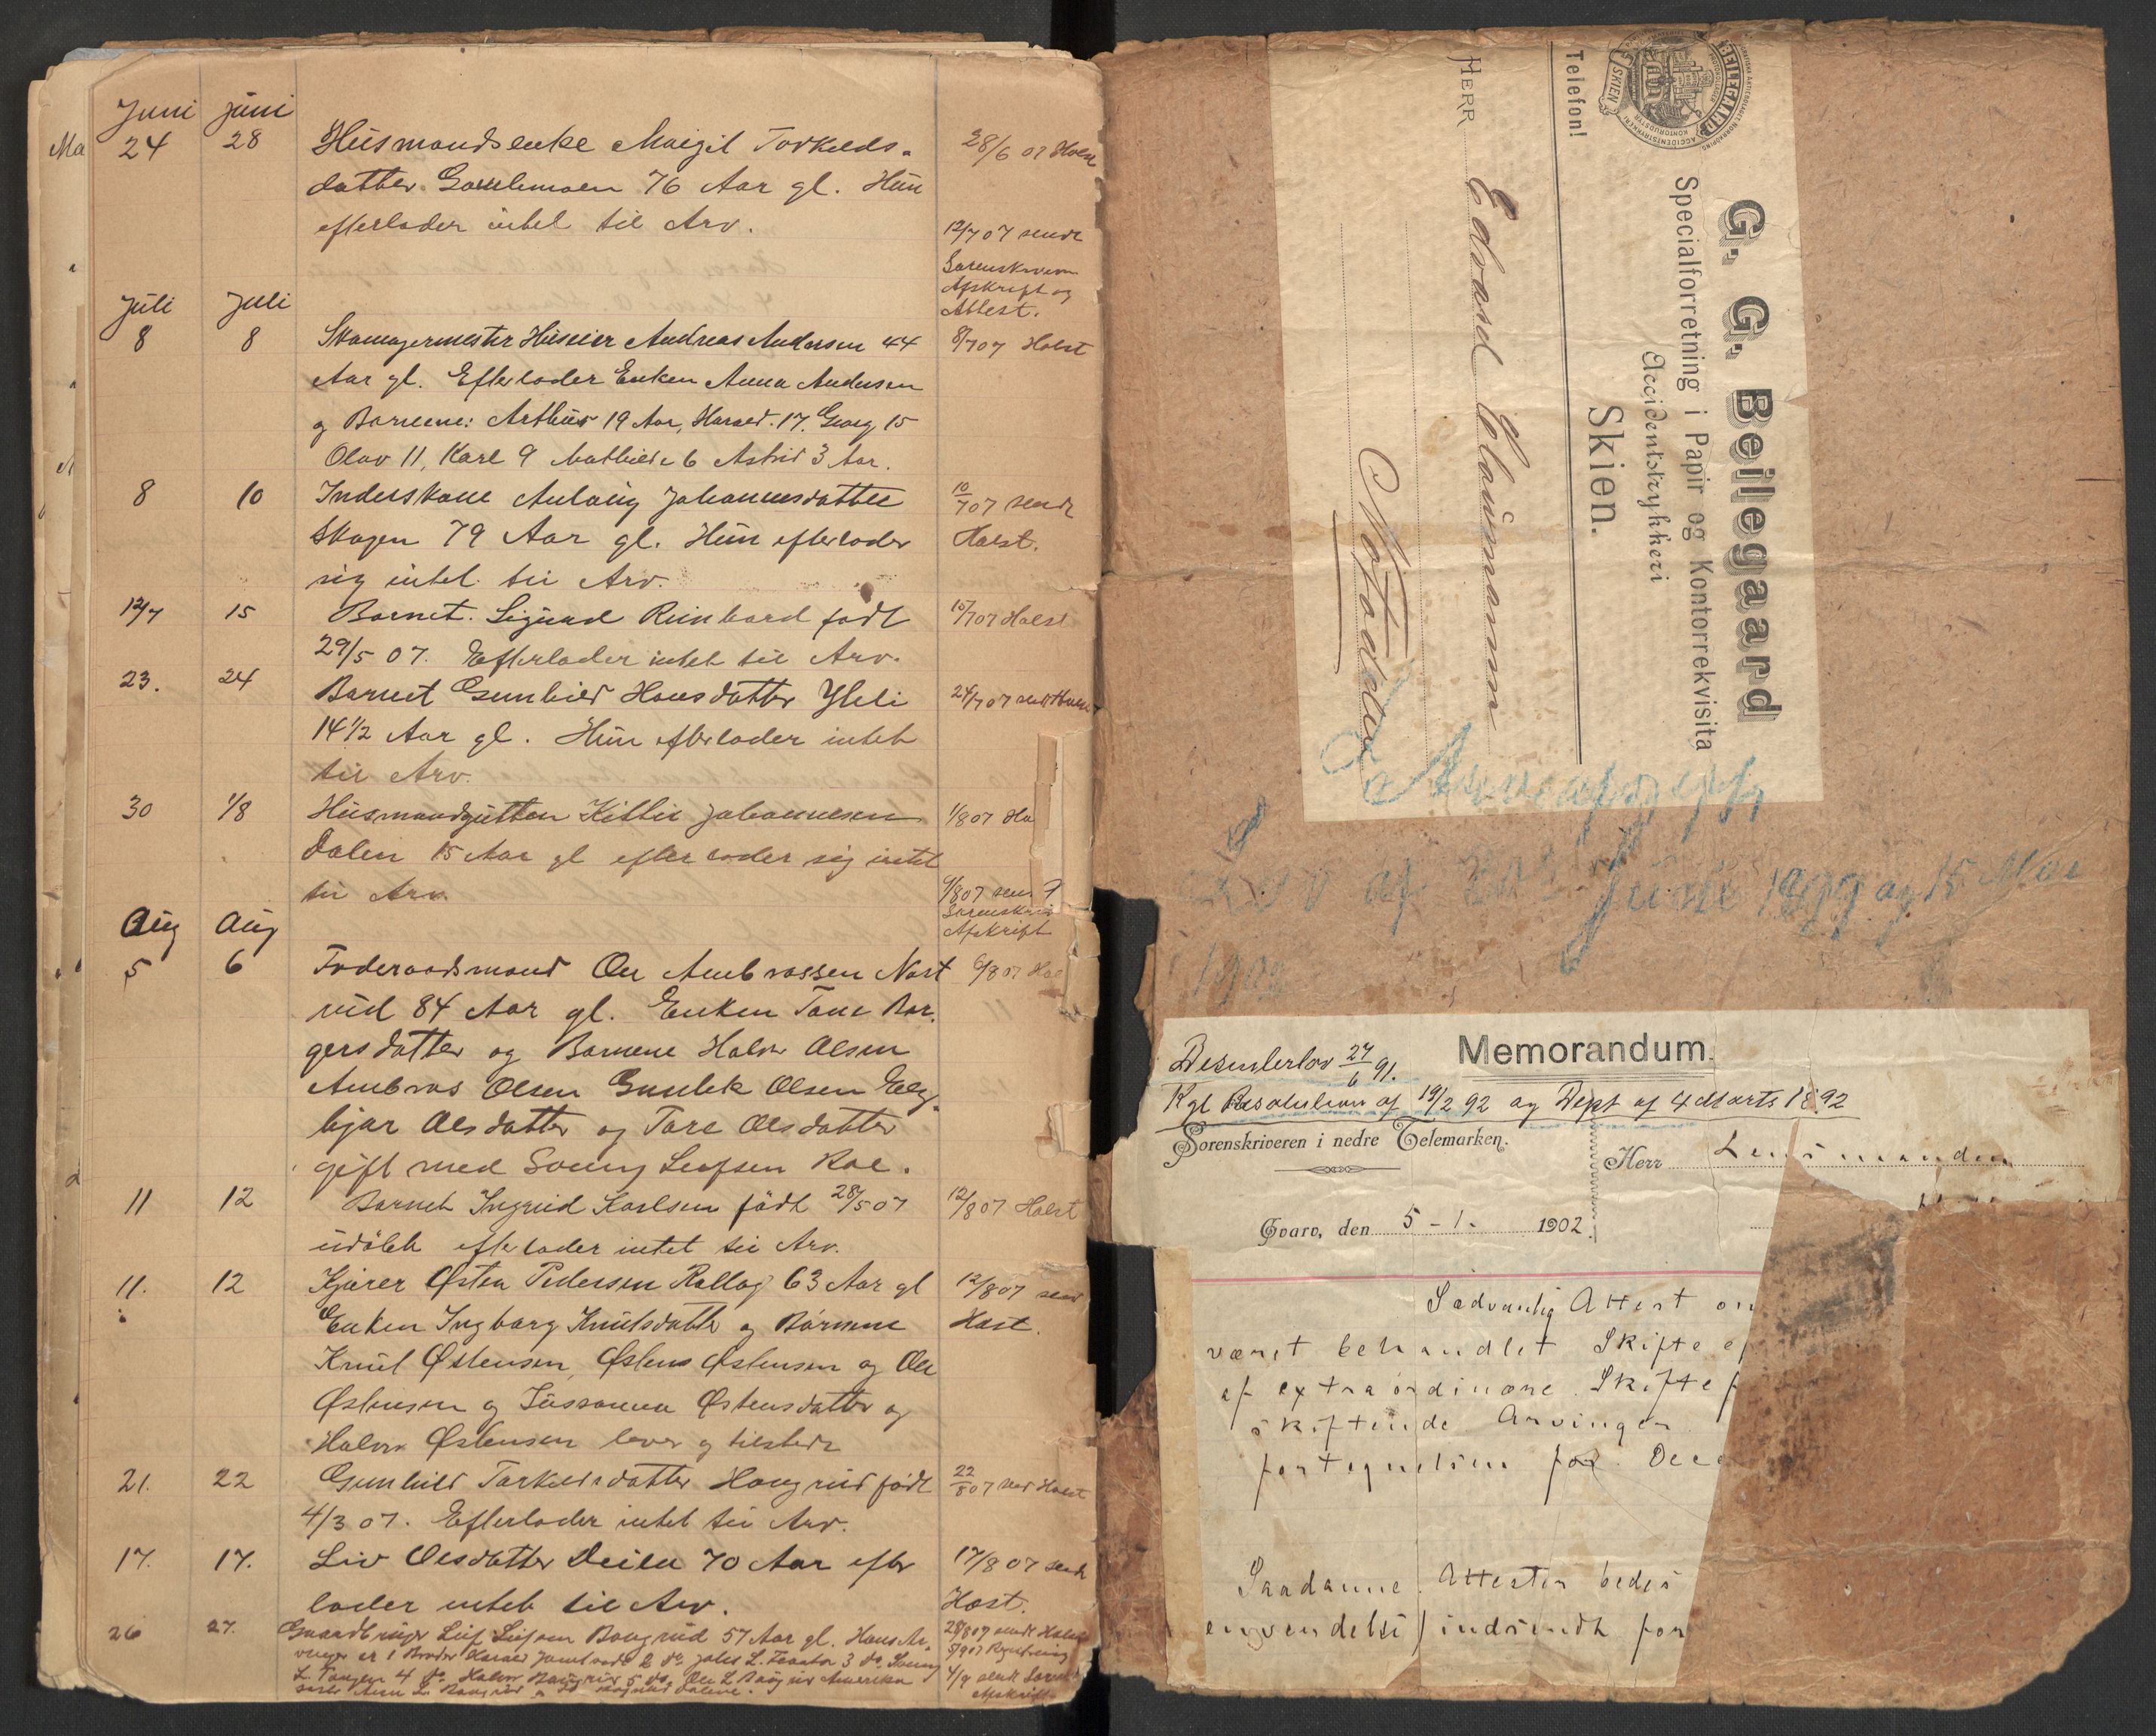 Juni Juni
24 28 Husmandsenke Margit Torkelds- 28/6 07 Holst
datter 76 Aar gl. Hun
efterlader intet til Arv. 12/7 07 sendt
Sorenskriveren
Afskrift og
Juli Juli Attest.
8 8 Skomagermester Huseier Andreas Andersen 44 8/7 07 Holst
Aar gl. Efterlader Enken Anna Andersen
og Børnene: Arthur 19 Aar, Harald 17, Georg 15
Olav 11, Karl 9 Mathilde 6 Astrid 3 Aar.
8 10 Inderstkone Anlaug Johannesdatter 10/7 07 sendt
Skogen 79 Aar gl. Hun efterlader Holst.
sig intet til Arv.
12/7 15 Barnet Sigurd Reinhard født 15/7 07 Holst
29/5 07. Efterlader intet til Arv.
23. 24 Barnet Gunhild Hansdatter Yli 24/7 07 sendt Holst
14 1/2 Aar gl. Hun efterlader intet
til Arv.
30 1/8 Husmandsgutten Kittil Johannesen 1/8 07 Ho
Dalen 15 Aar gl efterlader sig intet
til Arv. 6/8 07 sendt
Sorenskriv
Aug Aug Afskrift
5 6 Føderaadsmand Ole Ambrossen Nast 6/8 07 Hol
rud 84 Aar gl. Enken Tone Bor-
gersdatter og Børnene Halvor Olsen
Ambros Olsen Gunlek Olsen Elg-
bjør Olsdatter og Tore Olsdatter
gift med Leifsen Roe.
11 12 Barnet Ingrid Karlsen født 28/5 07 12/8 07 Holst
udøbt efterlader intet til Arv.
11. 12 Kjører Østen Pedersen Rollag 63 Aar gl 12/8 07 send
Enken Ingborg Knutsdatter og Børnene Holst.
Knut Østensen, Østens Østensen og Ole
Østensen og Sussanna Østensdatter og
Halvor Østensen lever og tilstede
21. 22 Gunhild Torkildsdatter Haugrud født 22/8 07 send Holst
4/3 07. Efterlader intet til Arv.
17. 17. Liv Olsdatter Deilen 70 Aar efter 17/8 07 sendt
lader intet til Arv. Holst.
26 27. Gaardbruger Leif Leifsen Baugrud 57 Aar gl. Hans Ar- 28/8 07 sendt Holst
vinger er 1 Broder Harald 2 do. 3 do.
L. Tangen 4 do. Halvor Baugrud 5 do. Ole L Baugrud Amerika
Afskrift
G. G. Beilegaard
Specialforretning i Papir og Kontorrekvisita
Accidentstrykkeri
Skien.
Telefon!
BEILEGAARD
ACCIDENTSTRYKKERI
KONTORUDSTYR
SKIEN
HERR Edvard Clausmann
Notodden
Lov af Juni 1899 og 15 Mai
190
Memorandum.
Desemberlov 27/6 91.
Kgl Resolution af 19/2 92 og Dept af 4 Marts 1892
Sorenskriveren i nedre Telemarken.
Herr Lensmanden
Gvarv, den 5-1- 1902.
Sædvanlig Attest om
været behandlet Skifte ef
af extraordinære Skiftef
skiftende Arvinger
fortegnelsen for Dece
Saadanne Attester bedes
envendelse indsendt for